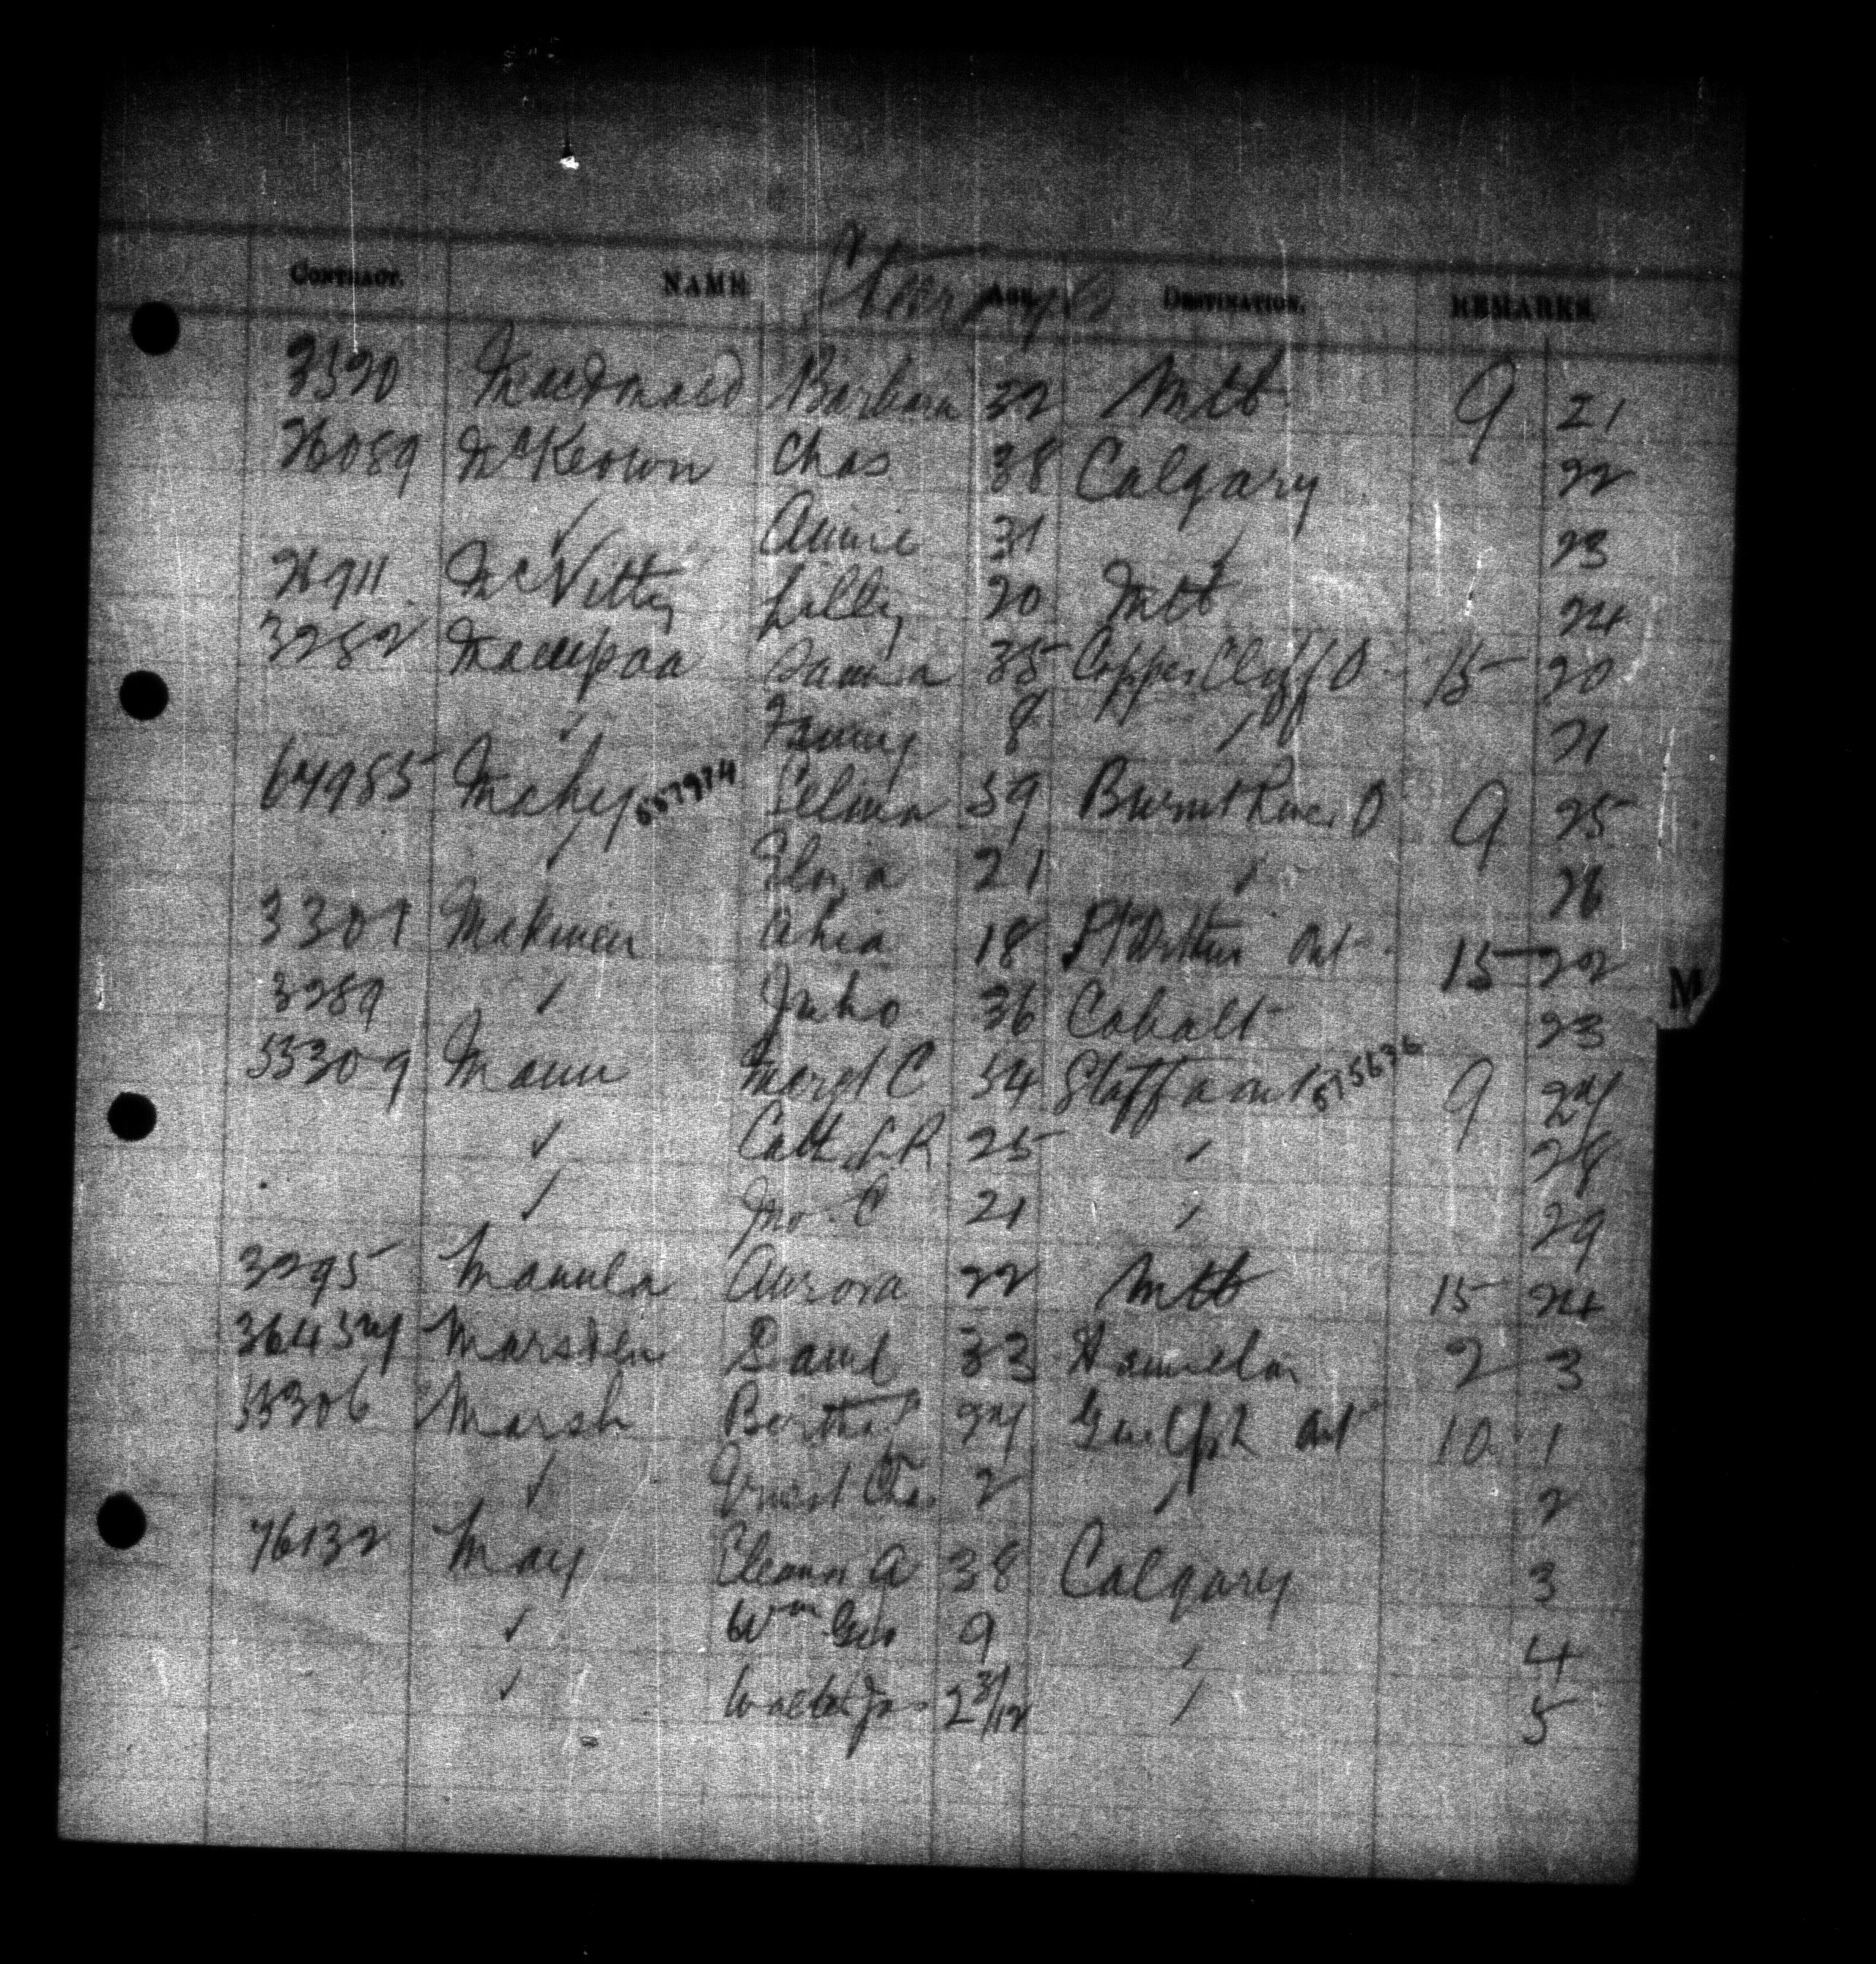 CONTRACT. NAME AGE DESTINATION. REMARKS.
3520 Macdonald Barbara 32 Mtl 9 21
26089 McKeown Chas 38 Calgary 22
✓ Annie 31 " 23
26911 McVitty Lilly 20 Mtl 24
3282 35 Copper Cliff O 15 20
" Fanny 8 " 21
64985 Mahy 557974 Selina 59 Burnt River O 9 25
✓ 21 " 26
3307 Makinen 18 Pt Arthur Ont 15 22
3289 " Juho 36 Cobalt 23
55309 Mann Margt C 54 Staffa Ont 575636 9 27
✓ Cath L R 25 " 28
✓ Jno. C 21 " 29
3295 Mannla Aurora 22 Mtl 15 24
36437 Marsden Saml 33 Hamilton 2 3
55306 Marsh Bertha 27 Guelph Ont 10 1
✓ Ernest Chas 2 " 2
76132 May Eleanr A 38 Calgary 3
✓ Wm Geo 9 " 4
✓ Walter Jn 2 3/12 " 5
M